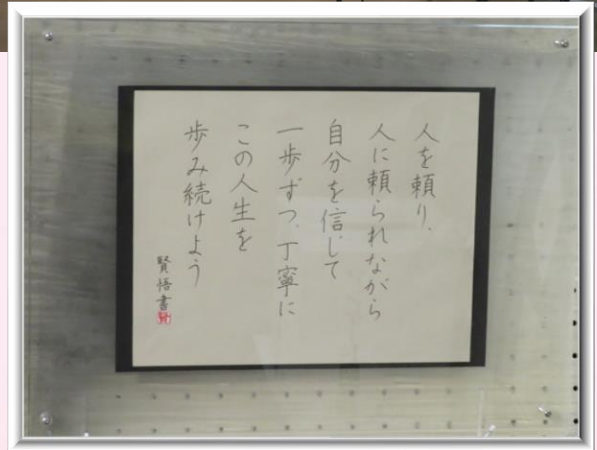 人を頼り、
人に頼られながら
自分を信じて
一歩ずつ、丁寧に
この人生を
歩み続けよう
賢悟書